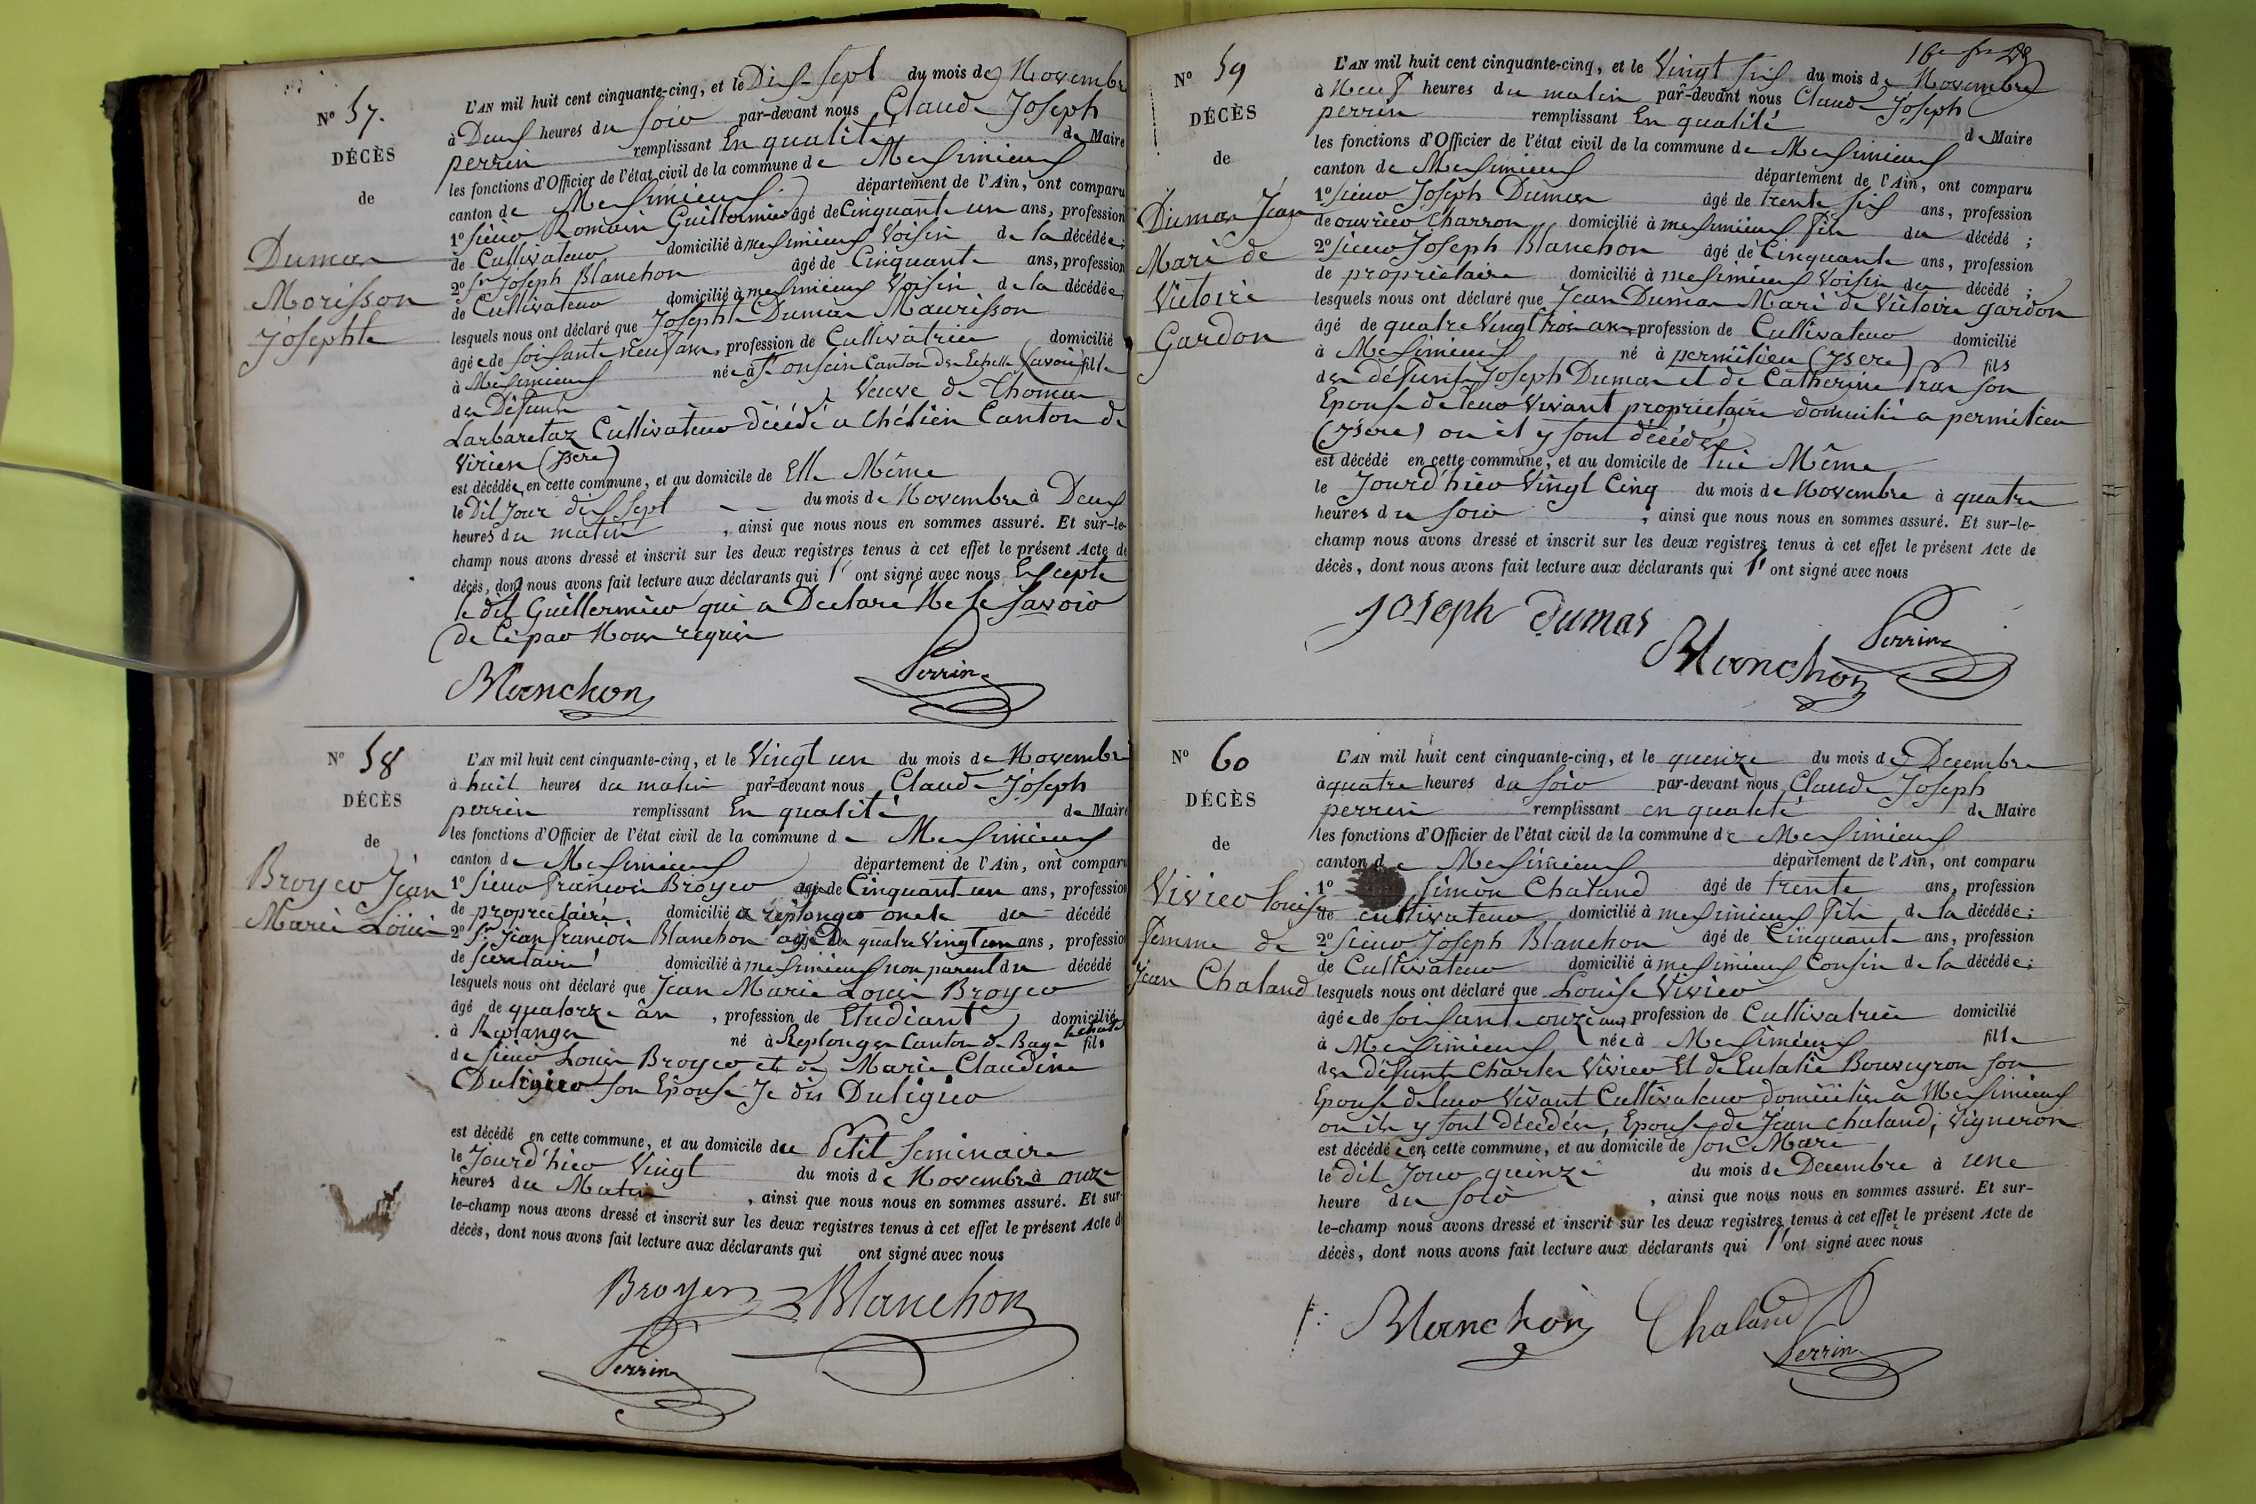 N° 57.
DÉCÈS
de
Dumas
Morisson
Josephte
L'AN mil huit cent cinquante-cinq, et le Dix-sept du mois de Novembre
à Deux heures du soir par-devant nous Claude Joseph
perrin remplissant En qualité de Maire
les fonctions d'Officier de l'état civil de la commune de Meximieux
canton de Meximieux département de l'Ain, ont comparu
1° sieur Romain Guillermier âgé de Cinquante un ans, profession
de Cultivateur domicilié à meximieux Voisin de la décédée;
2° sr Joseph Blanchon âgé de Cinquante ans, profession
de Cultivateur domicilié à meximieux Voisin de la décédée;
lesquels nous ont déclaré que Josephte Dumas Maurisson
âgée de soixante neuf ans, profession de Cultivatrice domicilié
à Meximieux née à Canton des Echelle Savoie fille
des Défunts Veuve de Thomas
Larbaretaz Cultivateur décédé a Chélieu Canton de
Virieu (Isère)
est décédée en cette commune, et au domicile de Elle Même
le Dit Jour dix sept du mois de Novembre à Deux
heures du matin, ainsi que nous nous en sommes assuré. Et sur-le-
champ nous avons dressé et inscrit sur les deux registres tenus à cet effet le présent Acte de
décès, dont nous avons fait lecture aux déclarants qui l' ont signé avec nous Excepté
le dit Guillermier qui a Declaré Ne le Savoir
de Ce par Nous requis
Blanchon Perrin
N° 58
DÉCÈS
de
Broyer Jean
Marie Louis
L'AN mil huit cent cinquante-cinq, et le Vingt un du mois de Novembre
à huit heures du matin par-devant nous Claude Joseph
perrin remplissant En qualité de Maire
les fonctions d'Officier de l'état civil de la commune de Meximieux
canton de Meximieux département de l'Ain, ont comparu
1° sieur francois Broyer âgé de Cinquant un ans, profession
de propriétaire domicilié a replonges oncle du décédé
2° sr Jean francois Blanchon agé de quatre Vingt un ans, profession
de domicilié à meximieux non parent du décédé
lesquels nous ont déclaré que Jean Marie Louis Broyer
âgé de quatorze an, profession de Etudiant domicilié
à Replonges né à Replonges Canton de Bagé le chatel fils
de sieur Louis Broyer et de Marie Claudine
Duligier son Epouse Je dis Duligier
est décédé en cette commune, et au domicile du Petit seminaire
le Jourd'hier Vingt du mois de Novembre à onze
heures du Matin, ainsi que nous nous en sommes assuré. Et sur-
le-champ nous avons dressé et inscrit sur les deux registres tenus à cet effet le présent Acte de
décès, dont nous avons fait lecture aux déclarants qui ont signé avec nous
Broyer Blanchon
Perrin
N° 59
DÉCÈS
de
Dumas Jean
Mari de
Victoire
Gardon
L'AN mil huit cent cinquante-cinq, et le Vingt six du mois de Novembre
à Neuf heures du matin par-devant nous Claude Joseph
perrin remplissant En qualité de Maire
les fonctions d'Officier de l'état civil de la commune de Meximieux
canton de Meximieux département de l'Ain, ont comparu
1° sieur Joseph Dumas âgé de trente six ans, profession
de ouvrier charron domicilié à meximieux fils du décédé;
2° sieur Joseph Blanchon âgé de Cinquante ans, profession
de propriétaire domicilié à meximieux Voisin du décédé;
lesquels nous ont déclaré que Jean Dumas Mari de Victoire gardon
âgé de quatre Vingt trois ans, profession de Cultivateur domicilié
à Meximieux né à permilieu (Isere) fils
des défunts Joseph Dumas et de Catherine son
Epouse de leur Vivant propriétaire domicilié a permilieu
(Isere) ou il y sont décédés
est décédé en cette commune, et au domicile de lui Même
le Jourd'hier Vingt Cinq du mois de Novembre à quatre
heures du soir, ainsi que nous nous en sommes assuré. Et sur-le-
champ nous avons dressé et inscrit sur les deux registres tenus à cet effet le présent Acte de
décès, dont nous avons fait lecture aux déclarants qui l'ont signé avec nous
Joseph Dumas Blanchon Perrin
N° 60
DÉCÈS
de
Vivier Louise
Femme de
Jean Chaland
L'AN mil huit cent cinquante-cinq, et le quinze du mois de Decembre
à quatre heures du soir par-devant nous Claude Joseph
perrin remplissant en qualité de Maire
les fonctions d'Officier de l'état civil de la commune de Meximieux
canton de Meximieux département de l'Ain, ont comparu
1° Simon Chaland âgé de trente ans, profession
de cultivateur domicilié à meximieux fils de la décédée;
2° sieur Joseph Blanchon âgé de Cinquante ans, profession
de Cultivateur domicilié à meximieux Cousin de la décédée;
lesquels nous ont déclaré que Louise Vivier
âgée de soixante onze ans profession de Cultivatrice domicilié
à Meximieux née à Meximieux fille
des défunts Charles Vivier Et de Eulalie Bouveyron son
Epouse de leur Vivant Cultivateur domicilies à Meximieux
ou ils y sont décédés, Epouse de Jean chaland, Vigneron
est décédée en cette commune, et au domicile de son Mari
le dit Jour quinze du mois de Decembre à une
heure du soir, ainsi que nous nous en sommes assuré. Et sur-
le-champ nous avons dressé et inscrit sur les deux registres tenus à cet effet le présent Acte de
décès, dont nous avons fait lecture aux déclarants qui l'ont signé avec nous
Blanchon Chaland
Perrin